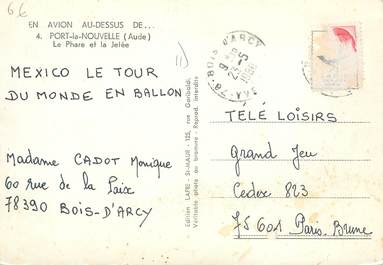 66
EN AVION AU-DESSUS DE...
4. PORT-la-NOUVELLE (Aude)
Le Phare et la Jetée
MEXICO LE TOUR
DU MONDE EN BALLON
Madame CADOT Monique
60 rue de la Paix
78390 BOIS-D'ARCY
Edition LAPIE, St-MAUR - 125, rue Garibaldi.
Véritable photo au bromure - Reprod. interdite
78-BOIS D'ARCY
23-5
TÉLÉ LOISIRS
Grand Jeu
Cedex 823
75601 Paris-Brune